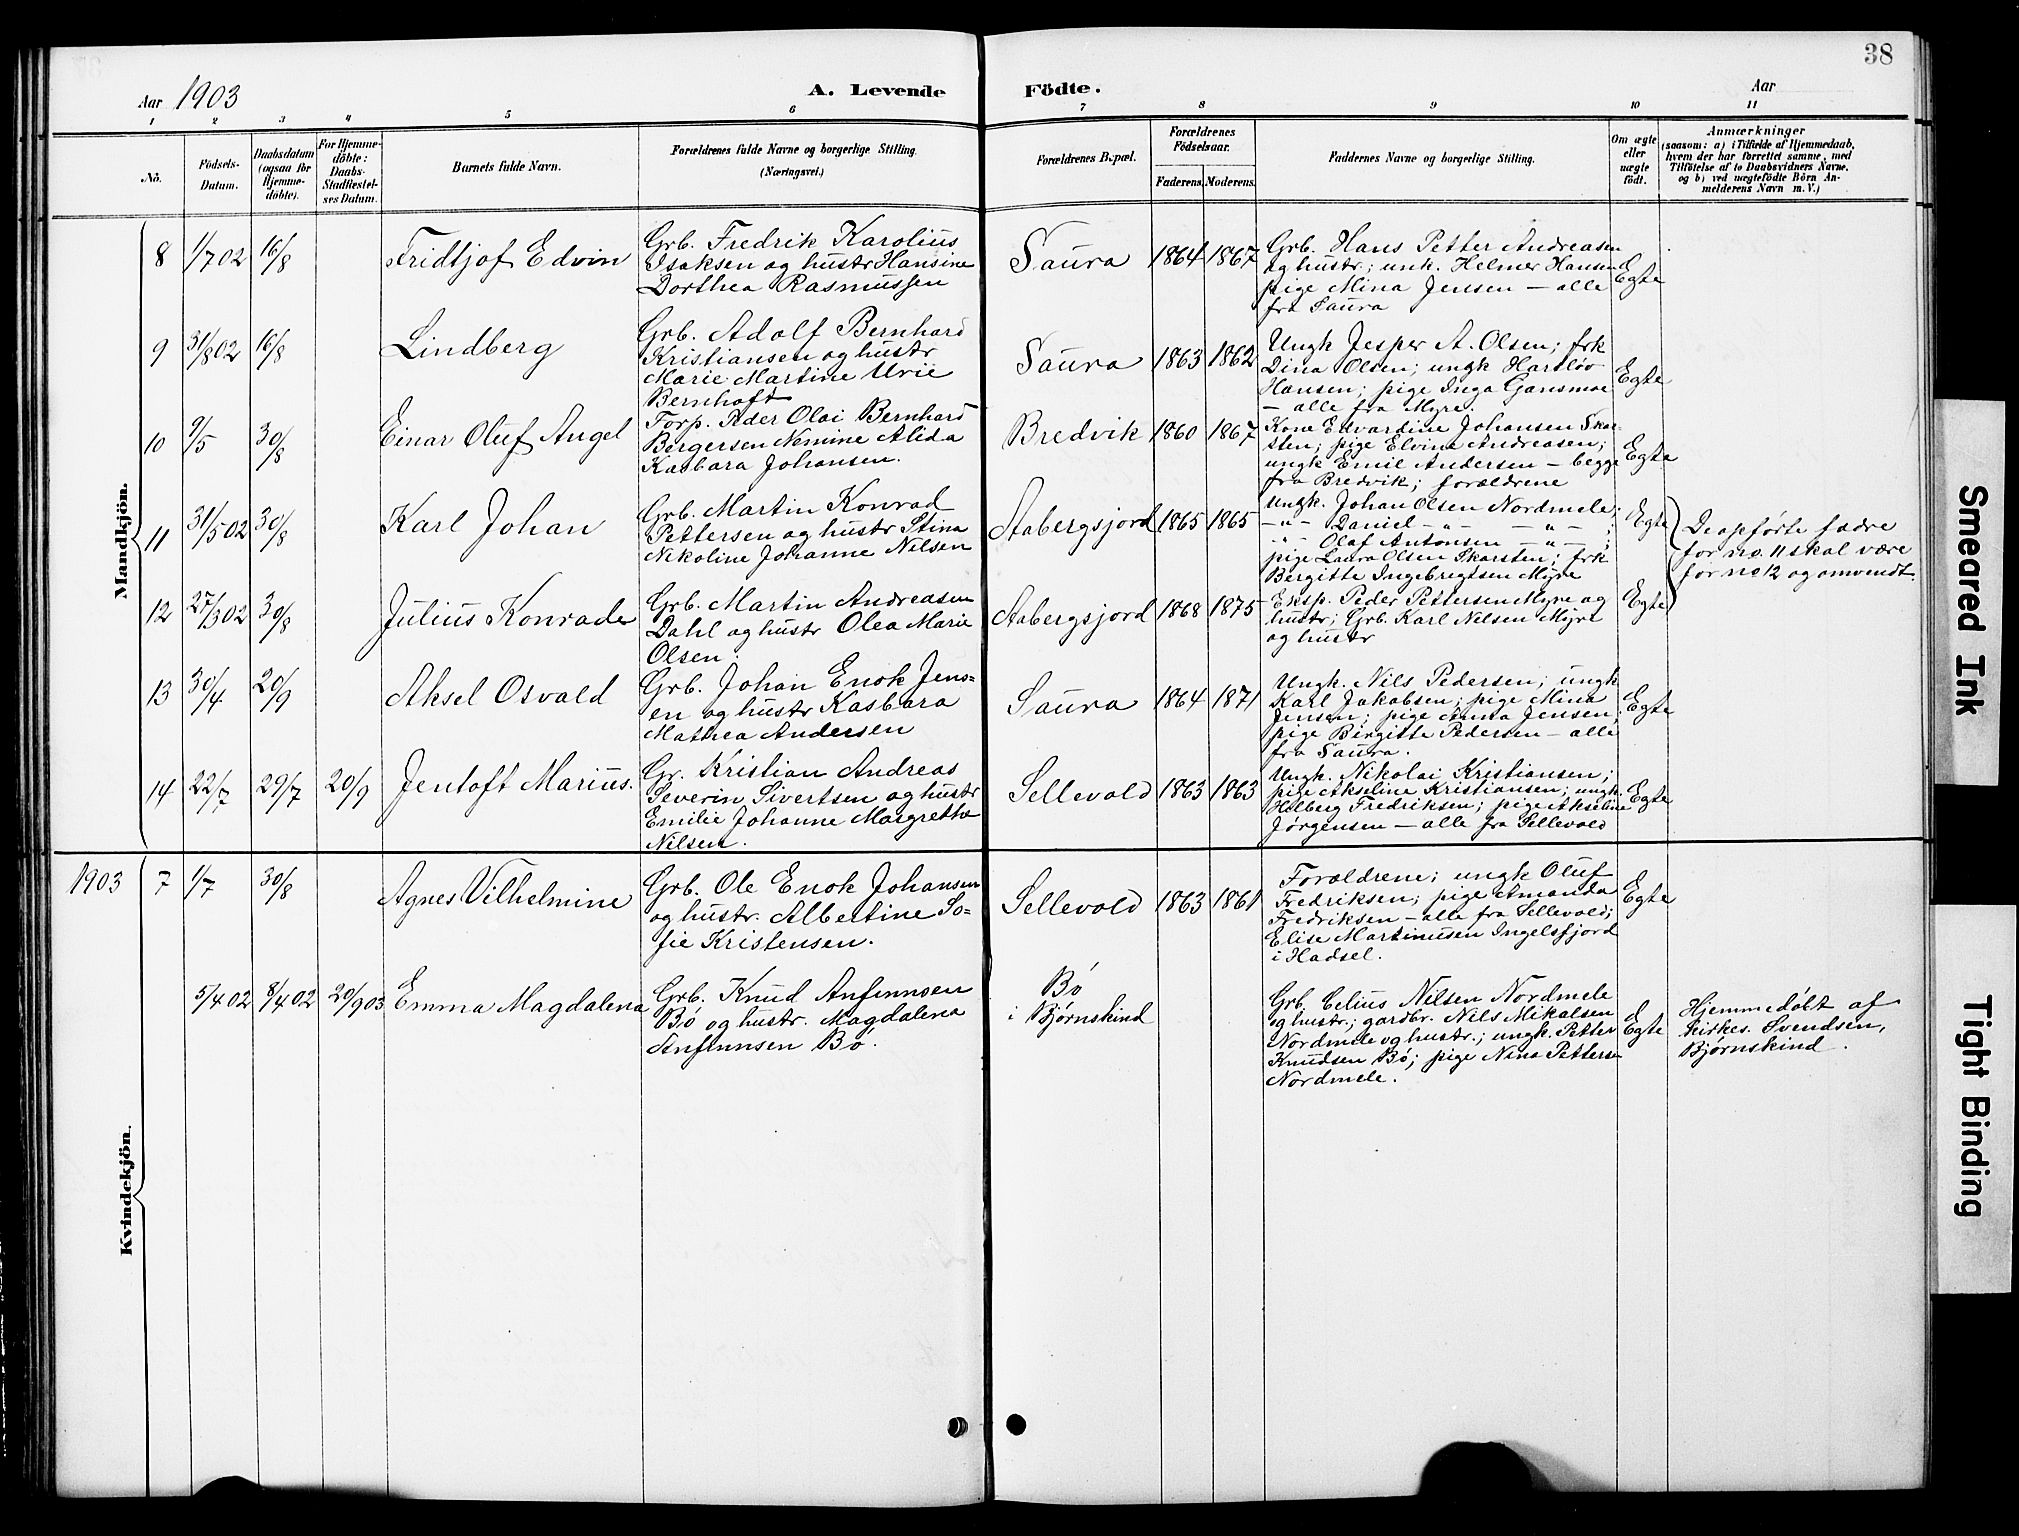 38
Aar 1903
A. Levende Födte.
Aar
1 2 3 4 5 6 7 8 9 10 11
No.
Födsels-
Datum.
Daabsdatum
(ogsaa for
Hjemme-
döbte).
For Hjemme-
döbte:
Daabs-
Stadfæstel-
ses Datum.
Barnets fulde Navn.
Forældrenes fulde Navne og borgerlige Stilling.
(Næringsvei.)
Forældrenes Bopæl.
Forældrenes
Födselsaar.
Faderens. Moderens.
Faddernes Navne og borgerlige Stilling.
Om ægte
eller
uægte
födt.
Anmærkninger
(saasom: a) i Tilfælde af Hjemmedaab,
hvem der har forrettet samme, med
Tilföielse af to Daabsvidners Navne.
og b) ved uægtefödte Börn An-
melderens Navn m. V.)
Mandkjön.
8 1/7 02 16/8
Fridtjof Edvin
Grb. Fredrik Karolius
Isaksen og hustr Hansine
Dorthea Rasmussen
Saura 1864 1867
Grb. Hans Petter Andreasen
og hustr; unk. Helmer Hansen
pige Mina Jensen – alle
fra Saura
Egte
9 31/8 02 16/8
Lindberg
Grb. Adolf Bernhard
Kristiansen og hustr
Marie Martine Urie
Bernhoft
Saura 1863 1862
Ungk Jesper A. Olsen; frk
Dina Olsen; ungk Hartløv
Hansen; pige Inga Gansmoe
– alle fra Myre.
Egte
10 9/5 30/8
Einar Oluf Angel
Forp. Peder Olai Bernhard
Bergersen Nemine Alida
Kasbara Johansen.
Bredvik 1860 1867
Kone Edvardine Johansen Skar-
sten; pige Elvina Andreasen;
ungk Emil Andersen – begge
fra Bredvik; forældrene
Egte
11 31/5 02 30/8
Karl Johan
Grb. Martin Konrad
Pettersen og hustr Stina
Nikoline Johanne Nilsen
Aabergsjord 1865 1865
Ungk. Johan Olsen Nordmele;
–"– Daniel –"– –"– ;
–"– Olaf Antonsen –"– ;
pige Laura Olsen Skarsten; frk
Bergitte Ingebregtsen Myre
Egte
De opførte fadre
for no. 11 skal være
for no 12 og omvendt.
12 27/3 02 30/8
Julius Konrade
Grb. Martin Andreasen
Dahl og hustr Olea Marie
Olsen.
Aabergsjord 1868 1875
Eksp. Peder Pettersen Myre og
hustr; Grb. Karl Nilsen Myre
og hustr
Egte
13 30/4 20/9
Aksel Osvald
Grb. Johan Enok Jens-
en og hustr Kasbara
Mathea Andersen
Saura 1864 1871
Ungk. Nils Pedersen; ungk
Karl Jakobsen; pige Mina
Jensen; pige Anna Jensen;
pige Birgitte Pedersen – alle
fra Saura.
Egte
14 22/7 29/7 20/9
Jentoft Marius.
Gr. Kristian Andreas
Severin Sivertsen og hustr
Emilie Johanne Margrethe
Nilsen.
Sellevold 1863 1863
Ungk. Nikolai Kristiansen;
pige Akseline Kristiansen; ungk
Holberg Fredriksen; pige Akseline
Jørgensen – alle fra Sellevold
Egte
Kvindekjön.
1903 7 1/7 30/8
Agnes Vilhelmine
Grb. Ole Enok Johansen
og hustr. Albertine So-
fie Kristensen.
Sellevold 1863 1861
Forældrene; ungk Oluf
Fredriksen; pige Amanda
Fredriksen – alle fra Sellevold;
Elise Martinusen Ingelsfjord
i Hadsel.
Egte
5/4 02 8/4 02 20/9 03
Emma Magdalena
Grb. Knud Anfinnsen
Bø og hustr. Magdalena
Anfinnsen Bø.
Bø
i Bjørnskind
Grb. Celius Nilsen Nordmele
og hustr.; gardbr. Nils Mikalsen
Nordmele og hustr.; ungk. Petter
Knudsen Bø; pige Nina Petters
Nordmele.
Egte
Hjemmedøbt af
kirkes. Svendsen,
Bjørnskind.
Smeared Ink
Tight Binding